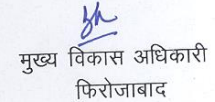 मुख्य विकास अधिकारी
फिरोजाबाद